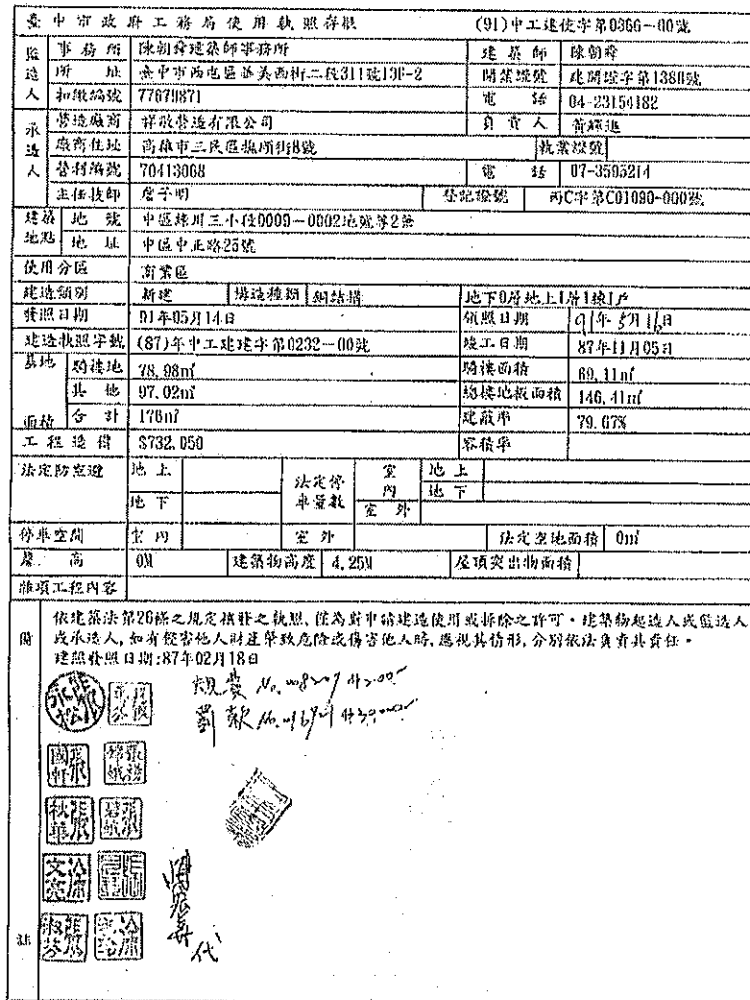 臺中市政府工務局使用執照存根 (91)中工建使字第0366-00號
監造人 事務所 陳朝舜建築師事務所 建築師 陳朝舜
所址 臺中市西屯區 美西街二段311號13F-2 開業證號 建開證字第1388號
扣繳編號 77679871 電話 04-23154182
承造人 營造廠商 祥敬營造有限公司 負責人 黃輝進
廠商住址 高雄市三民區撫順街8號 執業證號
營利編號 70413068 電話 07-3595214
主任技師 詹子明 登記證號 丙C字第C01090-000號
建築地點 地號 中區綠川三小段0009-0002地號等2筆
地址 中區中正路25號
使用分區 商業區
建造類別 新建 構造種類 鋼結構 地下0層地上1層1棟1戶
發照日期 91年05月14日 領照日期 91年5月16日
建造執照字號 (87)年中工建建字第0232-00號 竣工日期 87年11月05日
基地面積 騎樓地 78.98㎡ 騎樓面積 69.11㎡
其他 97.02㎡ 總樓地板面積 146.41㎡
合計 176㎡ 建蔽率 79.67%
工程造價 $732,050 容積率
法定防空避 地上 法定停車量數 室內 地上
地下 地下
室外
停車空間 室內 室外 法定空地面積 0㎡
簷高 0M 建築物高度 4.25M 屋頂突出物面積
雜項工程內容
依建築法第26條之規定核發之執照,僅為對申請建造使用或拆除之許可。建築物起造人或監造人
或承造人,如有侵害他人財產肇致危險或傷害他人時,應視其情形,分別依法負責其責任。
建照發照日期:87年02月18日
規費
代